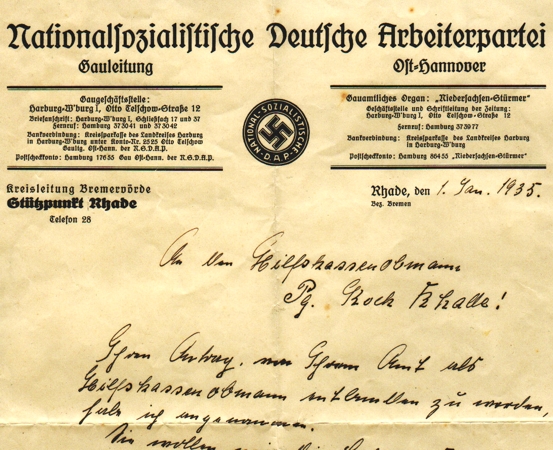 Nationalsozialistische Deutsche Arbeiterpartei
Gauleitung
Ost-Hannover
Gaugeschäftsstelle:
Harburg-W'burg 1, Otto Telschow-Straße 12
Briefanschrift: Harburg-W'burg 1, Schließfach 17 und 37
Fernruf: Hamburg 37 30 41 und 37 30 42
Bankverbindung: Kreissparkasse des Landkreises Harburg
in Harburg-W'burg unter Konto-Nr. 2525 Otto Telschow
Gaultg. Ost-Hann. der N.S.D.A.P.
Postscheckkonto: Hamburg 17635 Gau Ost-Hann. der N.S.D.A.P.
NATIONAL-SOZIALISTISCHE D.A.P.
Gauamtliches Organ: „Niedersachsen-Stürmer"
Geschäftsstelle und Schriftleitung der Zeitung:
Harburg-W'burg 1, Otto Telschow-Straße 12
Fernruf: Hamburg 37 39 77
Bankverbindung: Kreissparkasse des Landkreises Harburg
in Harburg-W'burg
Postscheckkonto: Hamburg 864 55 „Niedersachsen-Stürmer"
Kreisleitung Bremervörde
Stützpunkt Rhade
Telefon 28
Rhade, den 1. Jan. 1935.
Bez. Bremen
An den Hilfskassenobmann
Pg. Kock Rhade!
Ihren Antrag, von Ihrem Amt als
Hilfskassenobmann entbunden zu werden,
habe ich angenommen.
Sie wollen